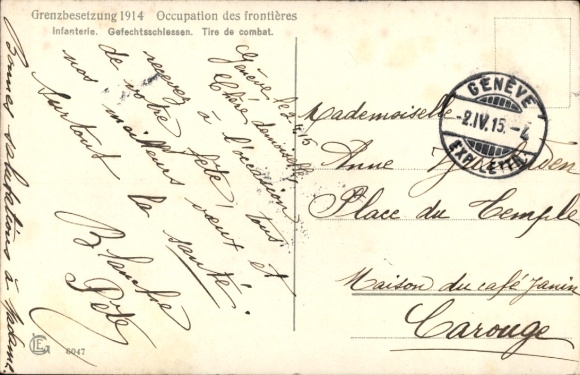 Grenzbesetzung 1914 Occupation des frontières
Infanterie. Gefechtsschiessen. Tire de combat.
Genève le 2.4.15
Chère demoiselle
recevez à l'occasion
de votre fête, tous
nos meilleurs vœux et
surtout la santé.
Blanche
Pète
Bonnes salutations à Madame.
GENÈVE
-2.IV.15.-4
EXP. LETTR.
Mademoiselle
Anne
Place du Temple
Maison du café Janin
Carouge
6047